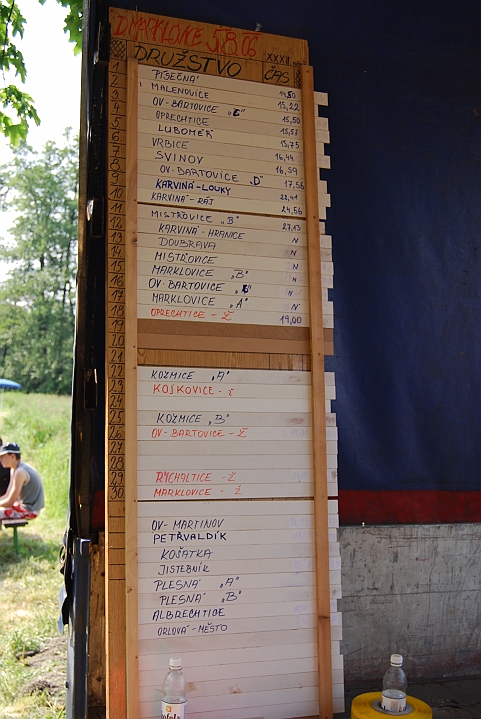 D. MARKLOVICE 5.8.06
DRUŽSTVO ČAS XXXII.
1 PÍSEČNÁ
2
3 MALENOVICE 14,50
4 OV-BARTOVICE "C" 15,22
5 OPRECHTICE 15,50
6 LUBOMĚŘ 15,57
7 VRBICE 15,75
8 SVINOV 16,44
9 OV-BARTOVICE "D" 16,59
10 KARVINÁ-LOUKY 17,56
KARVINÁ-RÁJ 22,41
11 24,56
12 MISTŘOVICE "B" 27,13
13 KARVINÁ-HRANICE N
14 DOUBRAVA N
MISTŘOVICE N
15 MARKLOVICE "B" N
16 OV-BARTOVICE "B" N
17 MARKLOVICE "A" N
18 OPRECHTICE - Ž 19,00
19
20
21
22 KOZMICE "A"
23 KOŠKOVICE - Ž
24
25 KOZMICE "B"
26 OV-BARTOVICE - Ž
27
28
29 RYCHALTICE - Ž
30 MARKLOVICE - Ž
OV-MARTINOV
PETŘVALDÍK
KOŠATKA
JISTEBNÍK
PLESNÁ "A"
PLESNÁ "B"
ALBRECHTICE
ORLOVÁ-MĚSTO